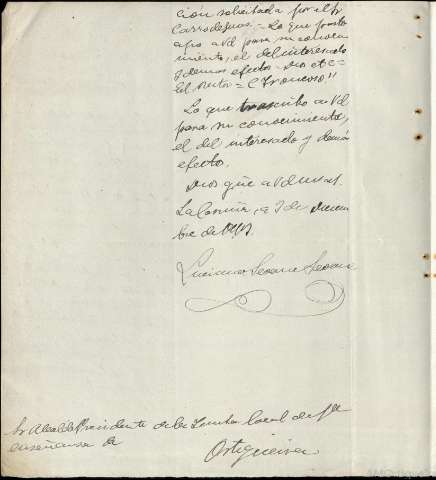 ción solicitada por el Sr
Carrodeguas.= Lo que
a Vd para su conoci
miento, el del interesado
y demas efectos - Dios etc =
El Rector = C Troncoso"
Lo que trascribo a Vd
para su conocimiento,
el del interesado y demás
efectos.
Dios gũe a Vd m.s a.s
La Coruña, a 7 de Diciem
bre de
Luciano Seoane Seoane
Sr Alcalde Presidente de la Junta local de 1ª
enseñanza de
Ortigueira